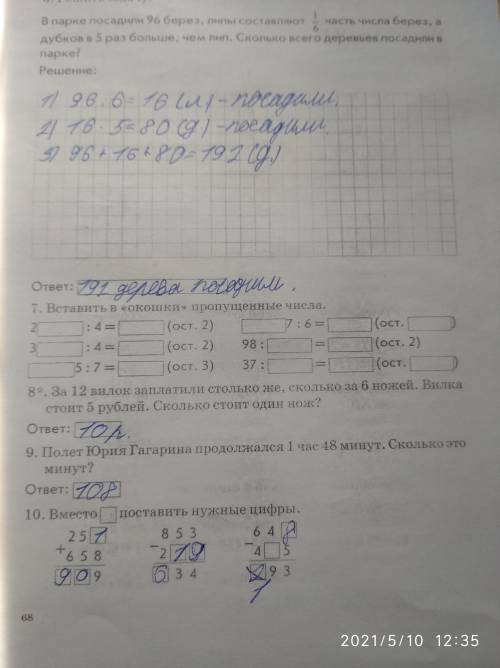 В парке посадили 96 берез, липы составляют 1/6 часть числа берез, а
дубков в 5 раз больше, чем лип. Сколько всего деревьев посадили в
парке?
Решение:
1) 96 : 6 = 16 (л) - посадили.
2) 16 · 5 = 80 (д) - посадили.
3) 96 + 16 + 80 = 192 (д)
Ответ: 192 дерева посадили.
7. Вставить в «окошки» пропущенные числа.
2□ : 4 = □ (ост. 2) □7 : 6 = □ (ост. □)
3□ : 4 = □ (ост. 2) 98 : □ = □ (ост. 2)
□5 : 7 = □ (ост. 3) 37 : □ = □ (ост. □)
8*. За 12 вилок заплатили столько же, сколько за 6 ножей. Вилка
стоит 5 рублей. Сколько стоит один нож?
Ответ: 10 р.
9. Полет Юрия Гагарина продолжался 1 час 48 минут. Сколько это
минут?
Ответ: 108
10. Вместо □ поставить нужные цифры.
251 853 648
+ 658 - 219 - 4□5
909 634 193
68
2021/5/10 12:35